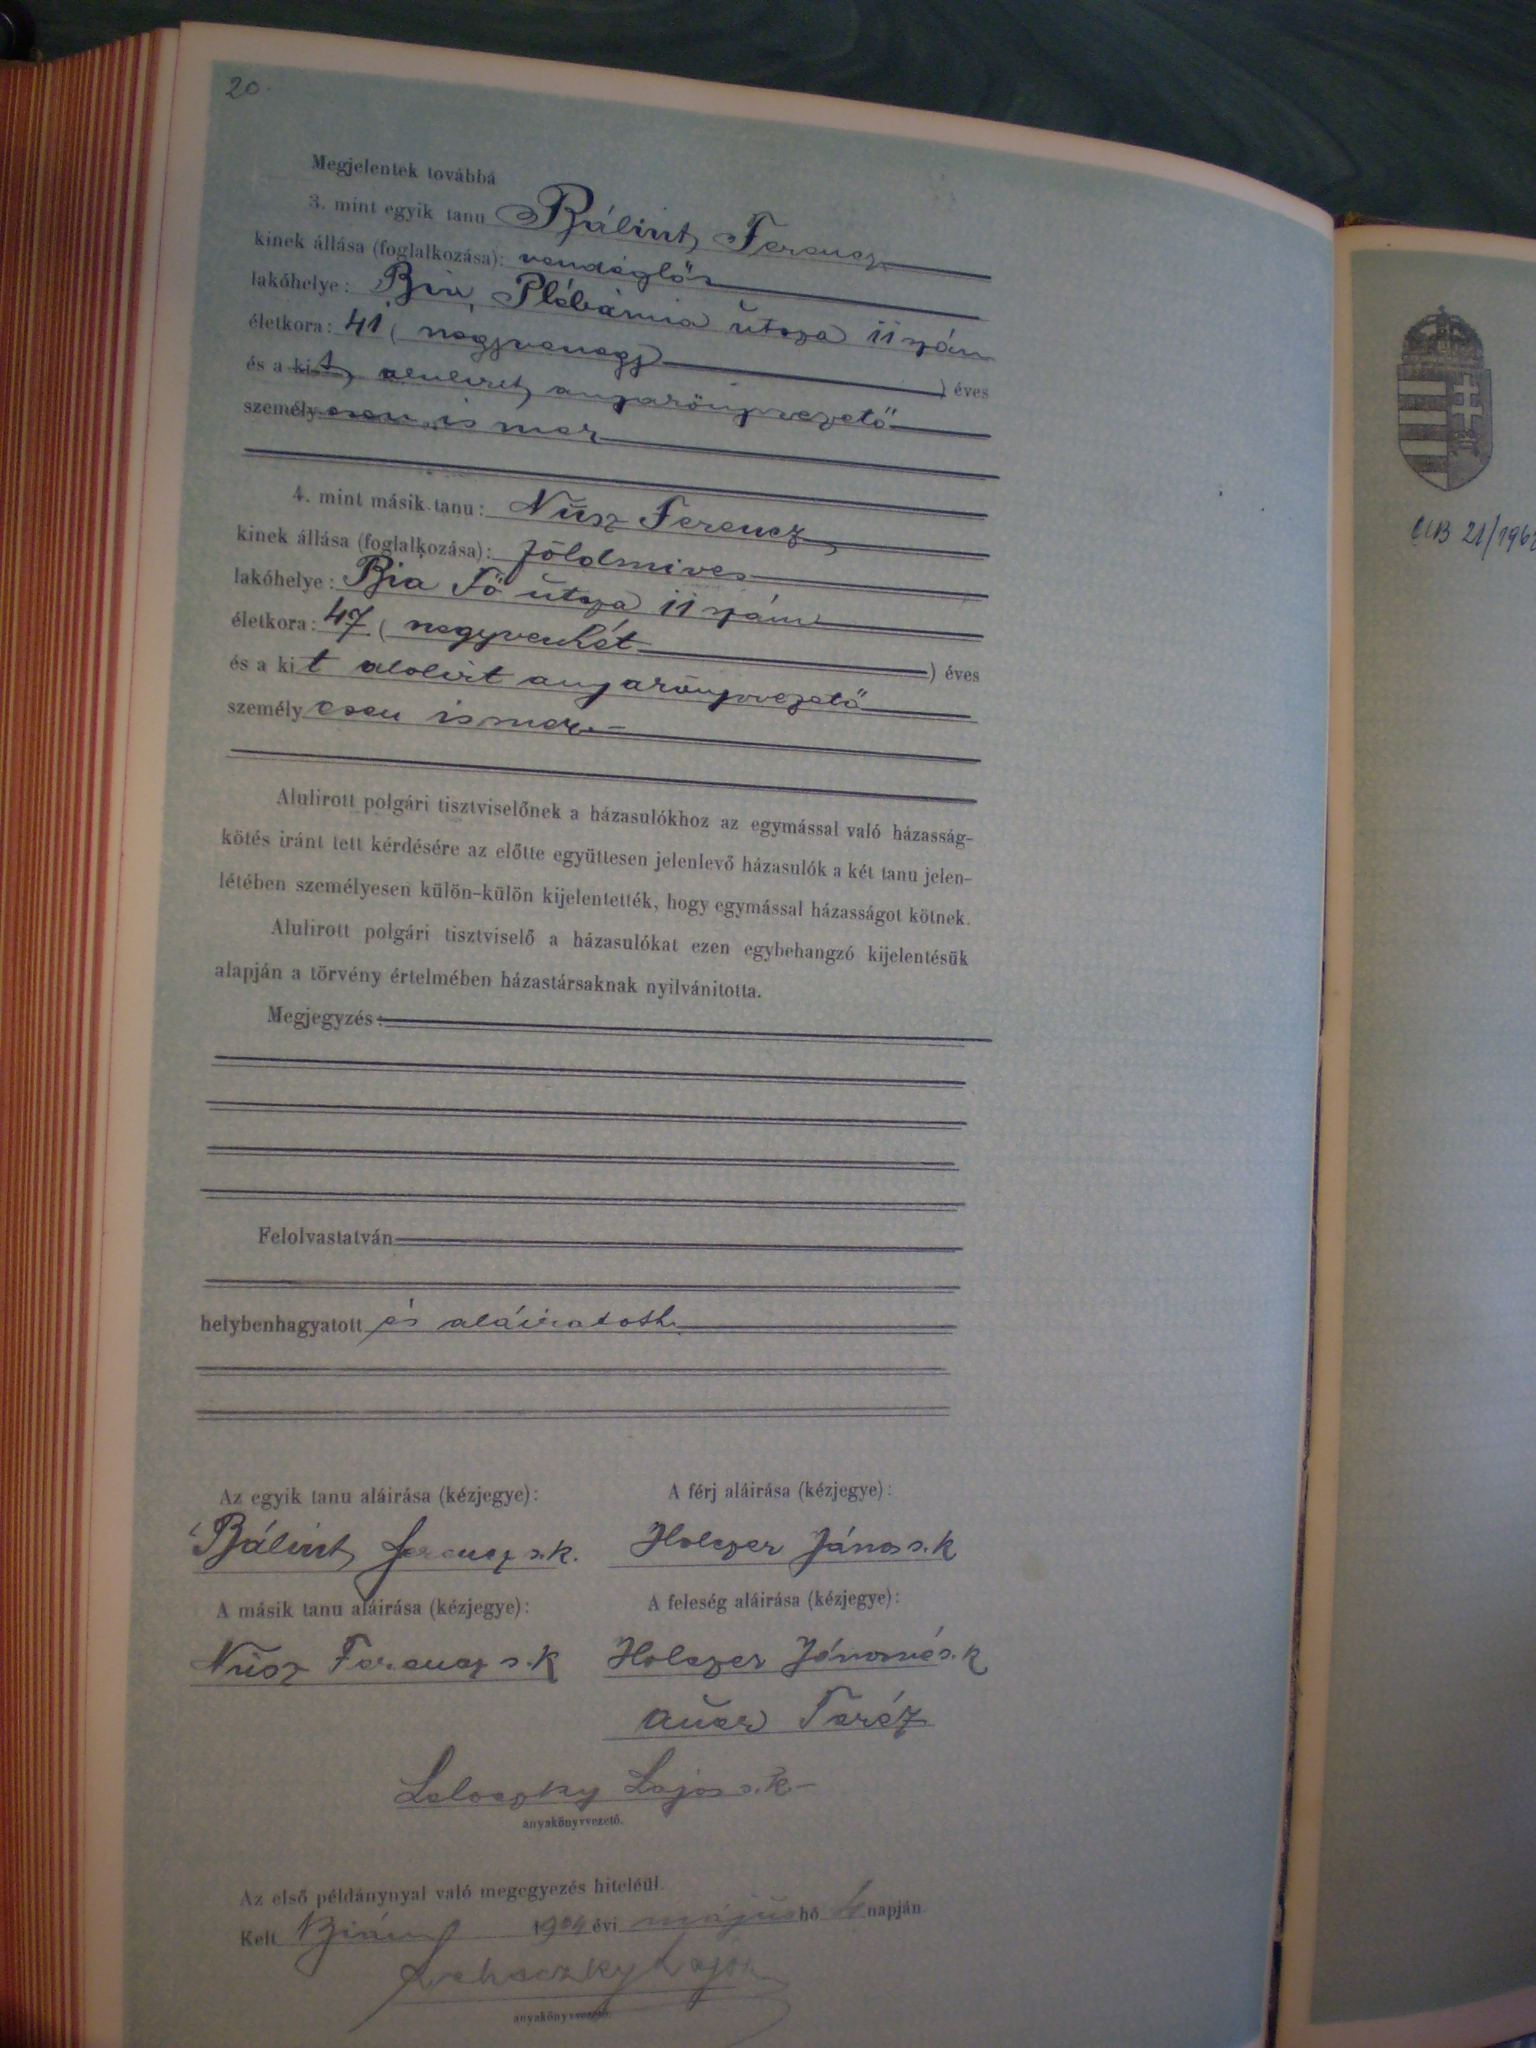 20.
Megjelentek továbbá
3. mint egyik tanu Bálint Ferencz
kinek állása (foglalkozása): vendéglős
lakóhelye: Bia, Plébánia utcza 11 szám
életkora: 41 ( negyvenegy ) éves
és a kit alulirt anyakönyvvezető
személyesen ismer
4. mint másik tanu: Nusz Ferencz
kinek állása (foglalkozása): földmives
lakóhelye: Bia Fő utcza 11 szám
életkora: 47 ( negyvenhét ) éves
és a kit alolirt anyakönyvvezető
személyesen ismer.
Alulirott polgári tisztviselőnek a házasulókhoz az egymással való házasság-
kötés iránt tett kérdésére az előtte együttesen jelenlevő házasulók a két tanu jelen-
létében személyesen külön-külön kijelentették, hogy egymással házasságot kötnek.
Alulirott polgári tisztviselő a házasulókat ezen egybehangzó kijelentésük
alapján a törvény értelmében házastársaknak nyilvánitotta.
Megjegyzés:
Felolvastatván
helybenhagyatott és aláiratott.
Az egyik tanu aláirása (kézjegye):
Bálint Ferencz s.k.
A férj aláirása (kézjegye):
Holczer János s.k
A másik tanu aláirása (kézjegye):
Nusz Ferencz s.k
A feleség aláirása (kézjegye):
Holczer Jánosné s.k
Auer Teréz
Lajos s.k.
anyakönyvvezető.
Az első példánynyal való megegyezés hiteléül.
Kelt Bián 1904 évi május hó napján
Lajos
anyakönyvvezető.
21/196